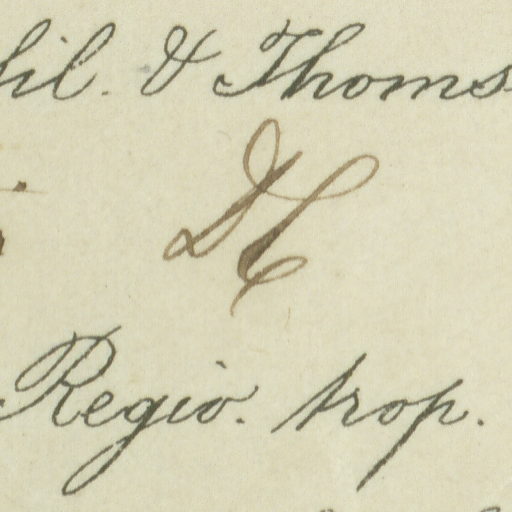 hil. & Thoms
DC
Regio. trop.